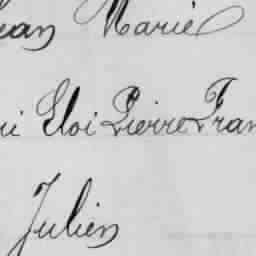 ean Marie
ui Eloi Pierre Fran
Julien